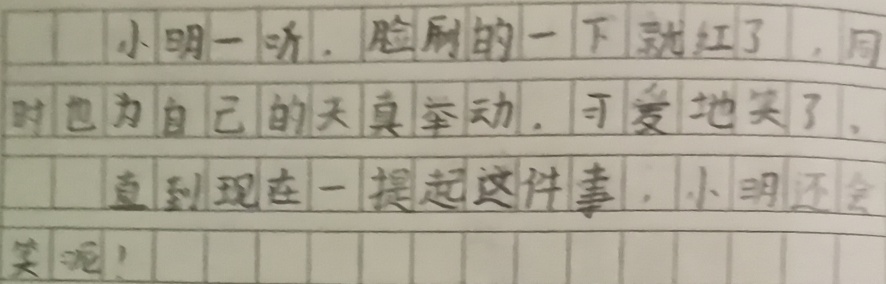 小明一听，脸刷的一下就红了，同
时也为自己的天真举动，可爱地笑了、
直到现在一提起这件事，小明还会
笑呢！